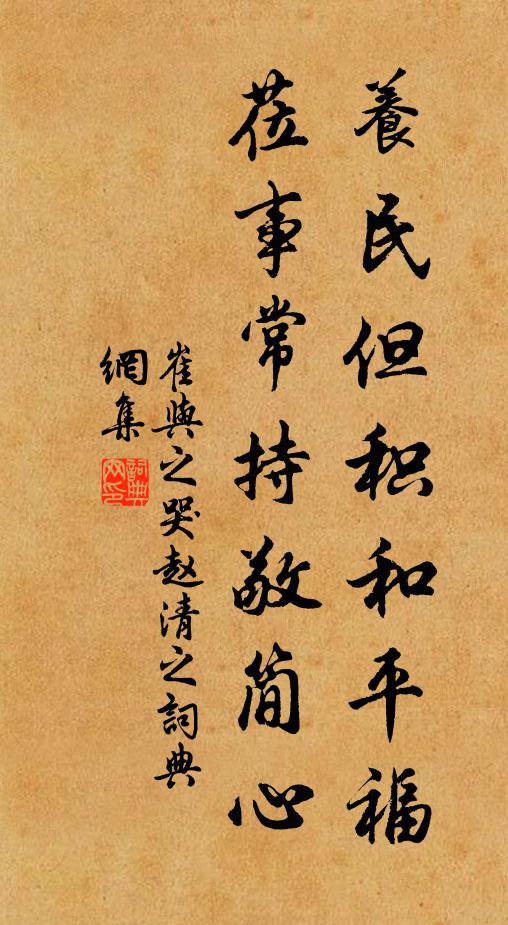 養民但积和平福
莅事常持敬简心
崔與之哭赵清之詞典
網集
詞典
网印